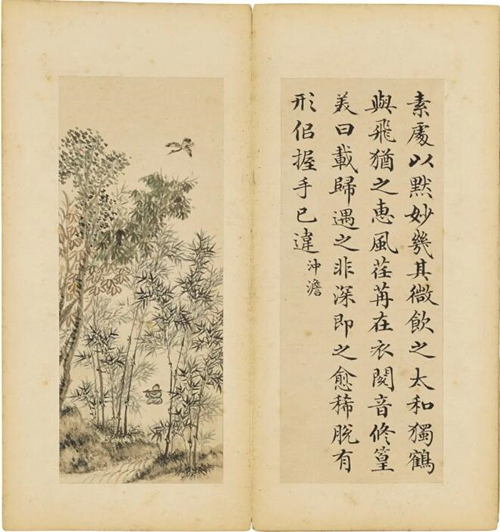 素處以默妙幾其微飲之太和獨鶴
與飛猶之惠風荏苒在衣閱音修篁
美曰載歸遇之非深即之愈稀脫有
形侣握手已違 沖澹